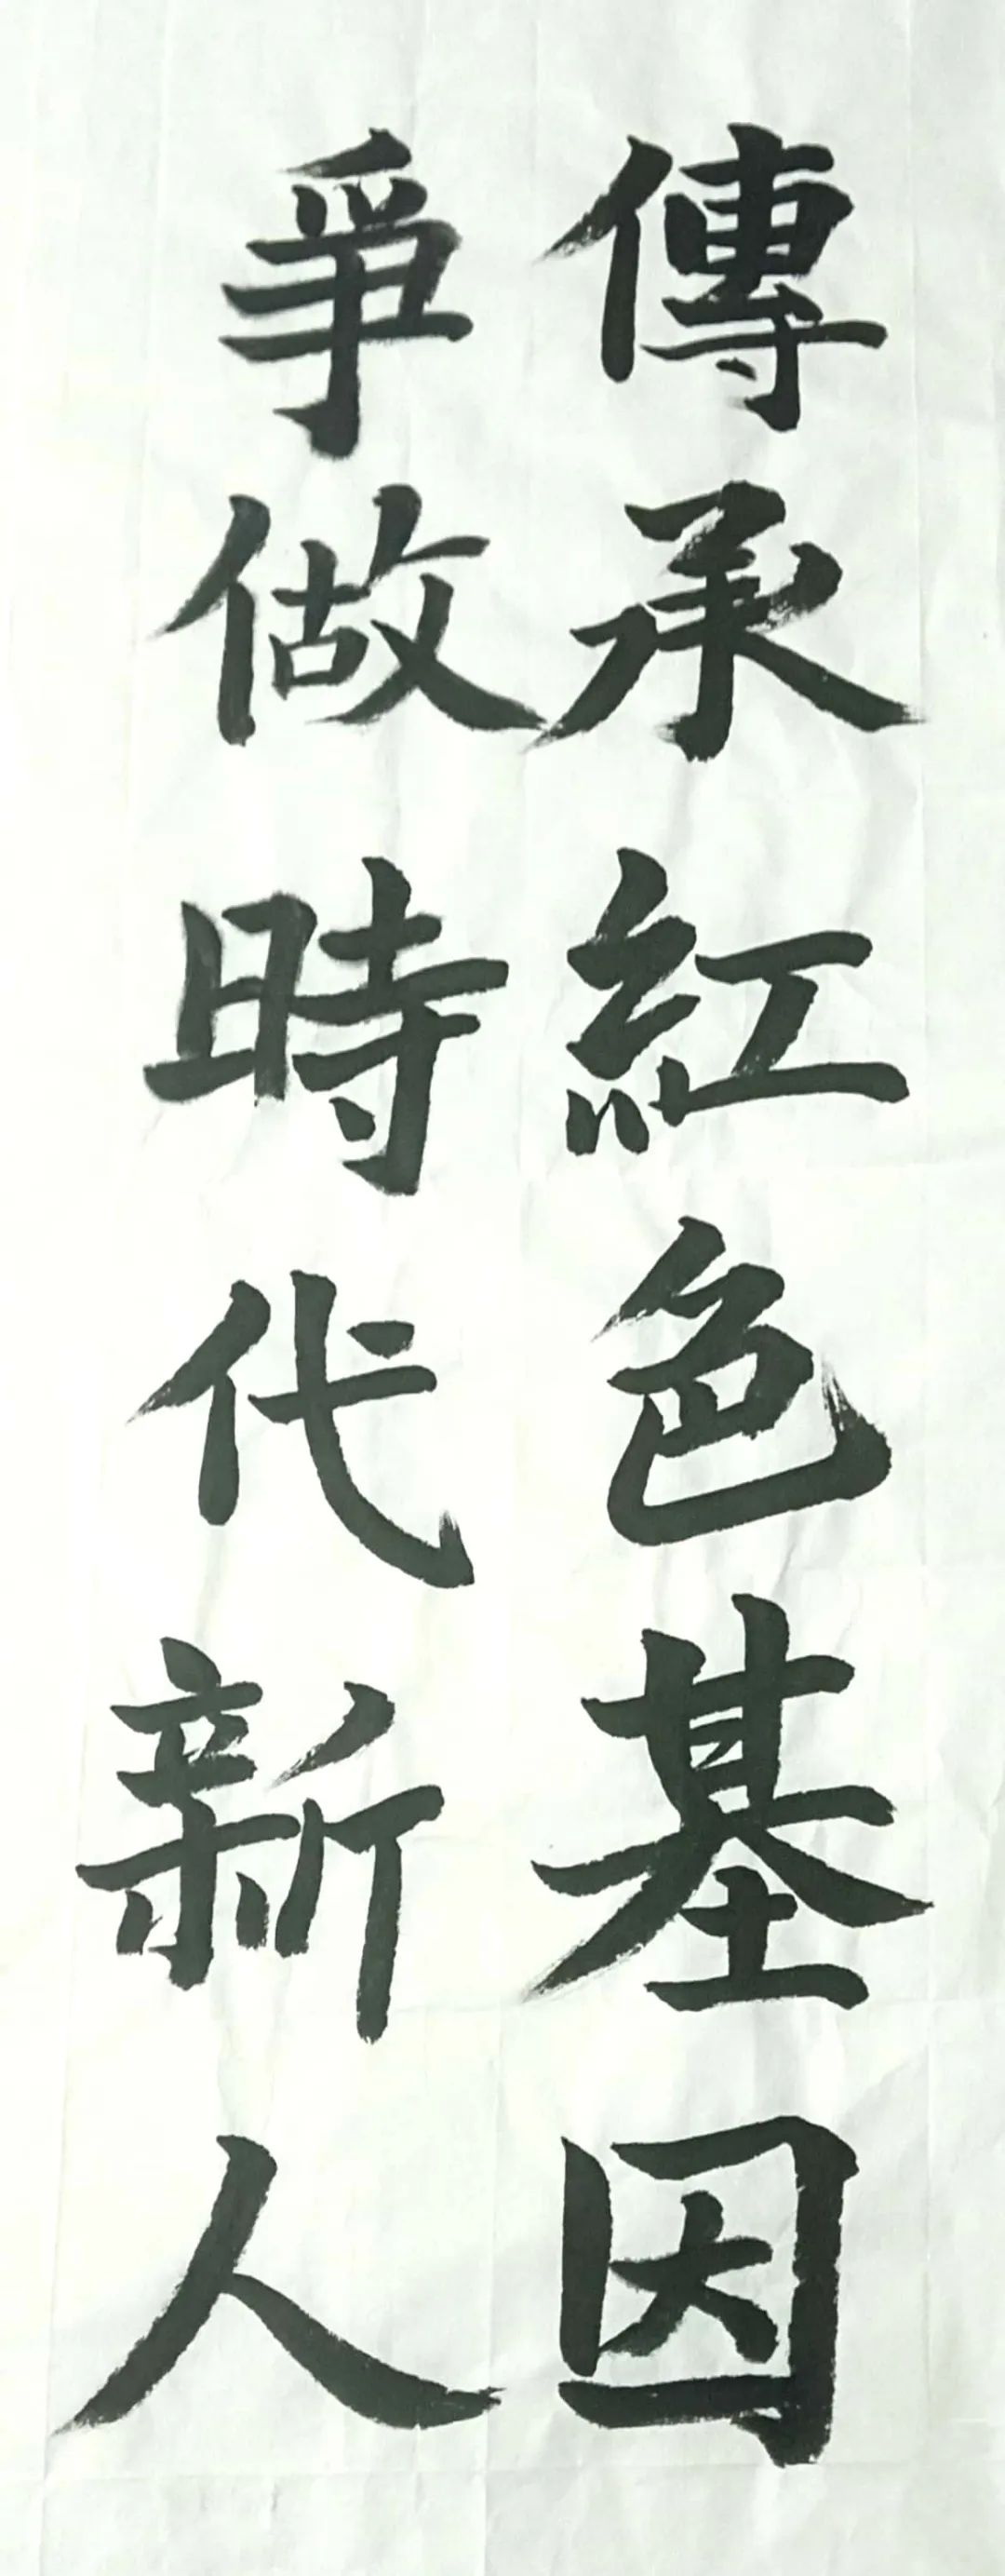 傳承紅色基因
爭做時代新人